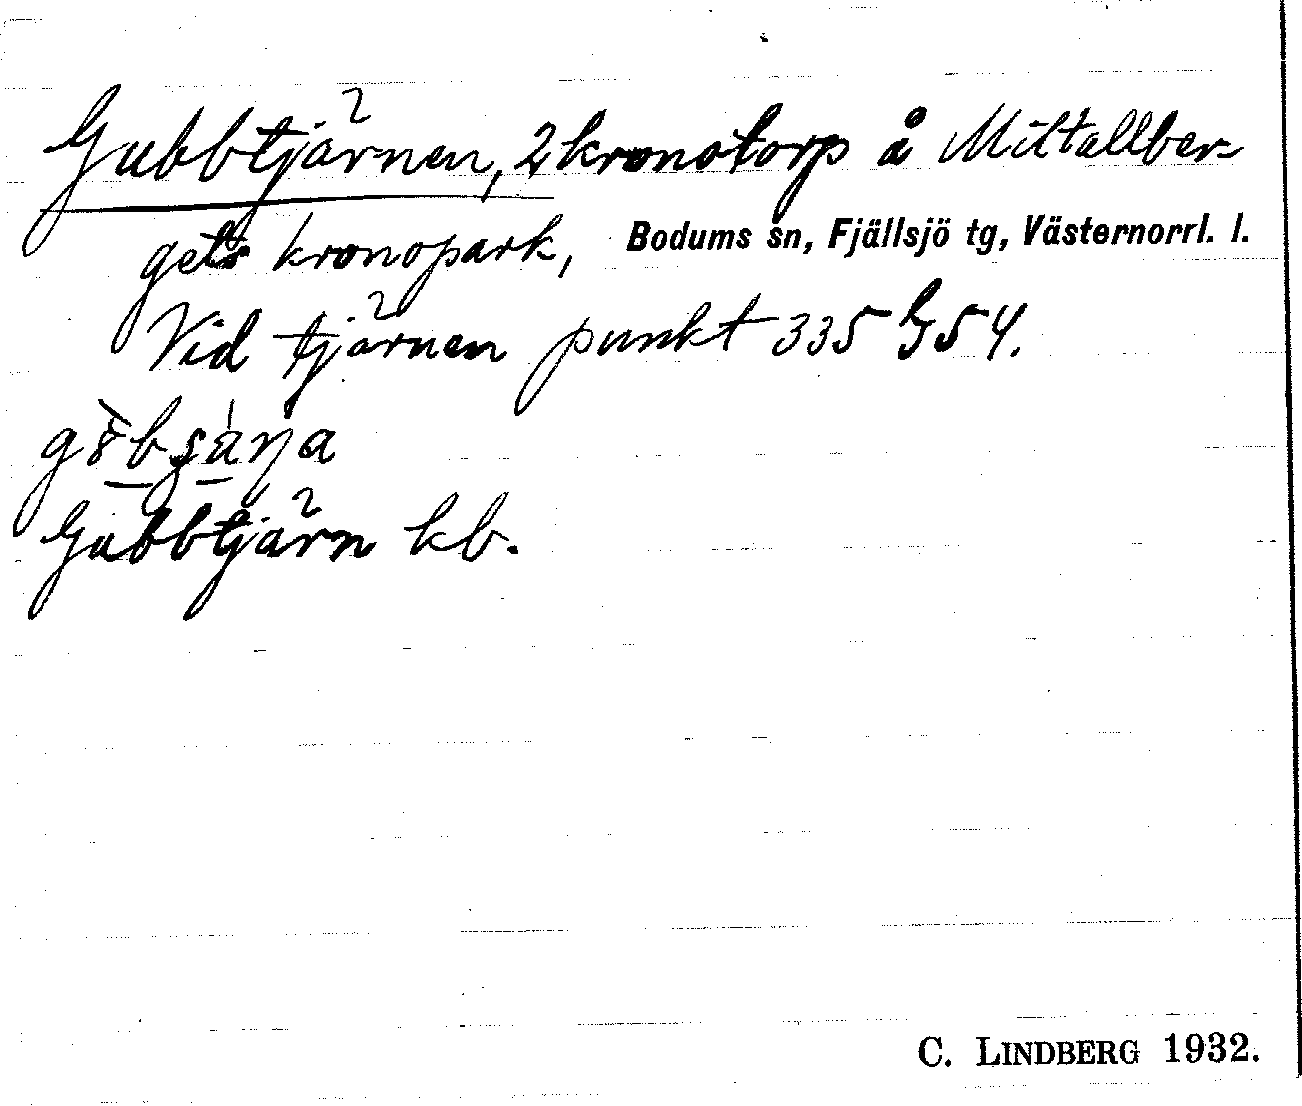 Gubbtjärnen, 2 kronotorp å Miltallber-
gets kronopark, Bodums sn, Fjällsjö tg, Västernorrl. l.
Vid tjärnen punkt 335 G54.
Gubbtjärn kb.
C. LINDBERG 1932.